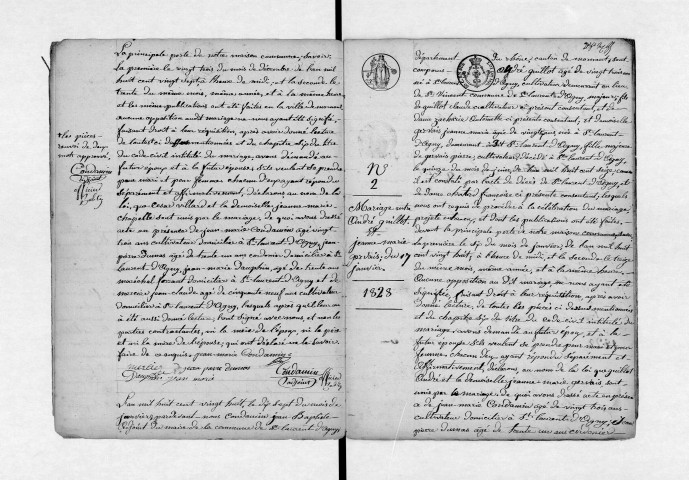 La principale porte de notre maison commune, savoir
La première le vingt trois du mois de décembre de l'an mil
huit cent vingt sept à l'heure de midi, et la seconde le
trente du même mois, même année, et à la même heure
et les même publications ont été faites en la ville de
aucune opposition audit mariage ne nous ayant été signifié,
faisant droit à leur réquisition, après avoir donné lecture
de toutes les et du chapitre six du titre
du code civil intitulé du mariage, avons demandé au
futur époux et à la future épouse s'ils veulent se prendre
pour mari et pour femme, chacun d'eux ayant répondu
séparément et affirmativement, déclarons au nom de la
loi, que César villard et la demoiselle jeanne marie
chapelle sont unis par le mariage, de quoi avons dressé
acte en présence de jean marie Condamin âgé vingt
trois ans cultivateur domicilier à St laurent d'Agny, jean
pierre dumas âgé de trente un ans cordonier domicilier à St
Laurent d'Agny, jean marie Dauphin âgé de trente ans
maréchal ferrant domicilier à St laurent d'Agny et de
mercier jean claude âgé de cinquante neuf ans cultivateur
domicilier à St laurent d'Agny, lesquels après qu'il leur
a été aussi donné lecture, l'ont signé avec nous, et non les
parties contractantes, ni la mère de l'époux, ni le père
et ni la mère de l'épouse, qui ont déclaré ne le savoir
faire de ce enquis. jean marie Condamin
mercier jean pierre dumas
Dauphin jean marie Condamin
adjoint
L'an mil huit cent vingt huit, le dix sept du mois de
janvier, pardevant nous Condamin jean Baptiste
adjoint du maire de la commune de St laurent d'Agny
les pièces
approuvé
Condamin
adjoint
N°
2
Mariage entre
André quillot
et
jeanne marie
gervais, du 17
janvier.
1828
département du Rhône, canton de mornant, sont
comparus André quillot âgé de vingt trois ans
né à St laurent d'Agny, cultivateur demeurant au lieu
de St Vincent commune de St laurent d'Agny, majeur, fils
de quillot claude cultivateur ci présent consentant, et de
ci présente consentant, et demoiselle
gervais jeanne marie âgé de vingt six ans née à St laurent
d'Agny, demeurant à St laurent d'Agny, fille majeure
de gervais pierre, cultivateur décédé à St laurent d'Agny,
le quinze du mois de juin de l'an mil huit cent seize, comme
il est constaté par l'acte de décès de St laurent d'Agny, et
de dame françoise ci présente consentant, lesquels
nous ont requis de procéder à la célébration du mariage
projeté entre eux, et dont les publications ont été faites,
devant la principale porte de notre maison commune, savoir
la première le six du mois de janvier, de l'an mil huit
cent vingt huit, à l'heure de midi, et la seconde le treize
du même mois, même année, et à la même heure.
Aucune opposition au dit mariage ne nous ayant été
signifiée, faisant droit à leur réquisition, après avoir
donné lecture, de toutes les pièces ci dessus mentionnées
et du chapitre six du titre du code civil intitulé du
mariage, avons demandé au futur époux et à la
future épouse s'ils veulent se prendre pour mari et pour
femme, chacun d'eux ayant répondu séparément et
affirmativement, déclarons, au nom de la loi que quillot
André et la demoiselle jeanne marie gervais sont
unis par le mariage, de quoi avons dressé acte en présence
de jean marie Condamin âgé de vingt trois ans
cultivateur domicilier à St laurent d'Agny, et jean
pierre dumas âgé de trente un ans cordonier